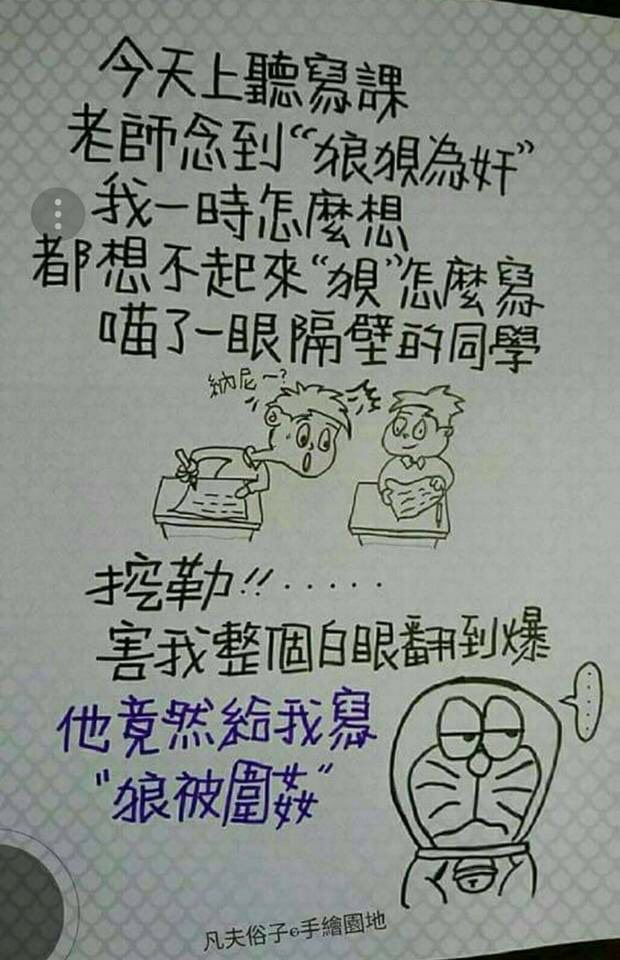 今天上聽寫課
老師念到“狼狽為奸”
我一時怎麼想
都想不起來“狽”怎麼寫
喵了一眼隔壁的同學
納尼～?
挖勒!!·····
害我整個白眼翻到爆
他竟然給我寫
“狼被圍姦”
凡夫俗子の手繪園地